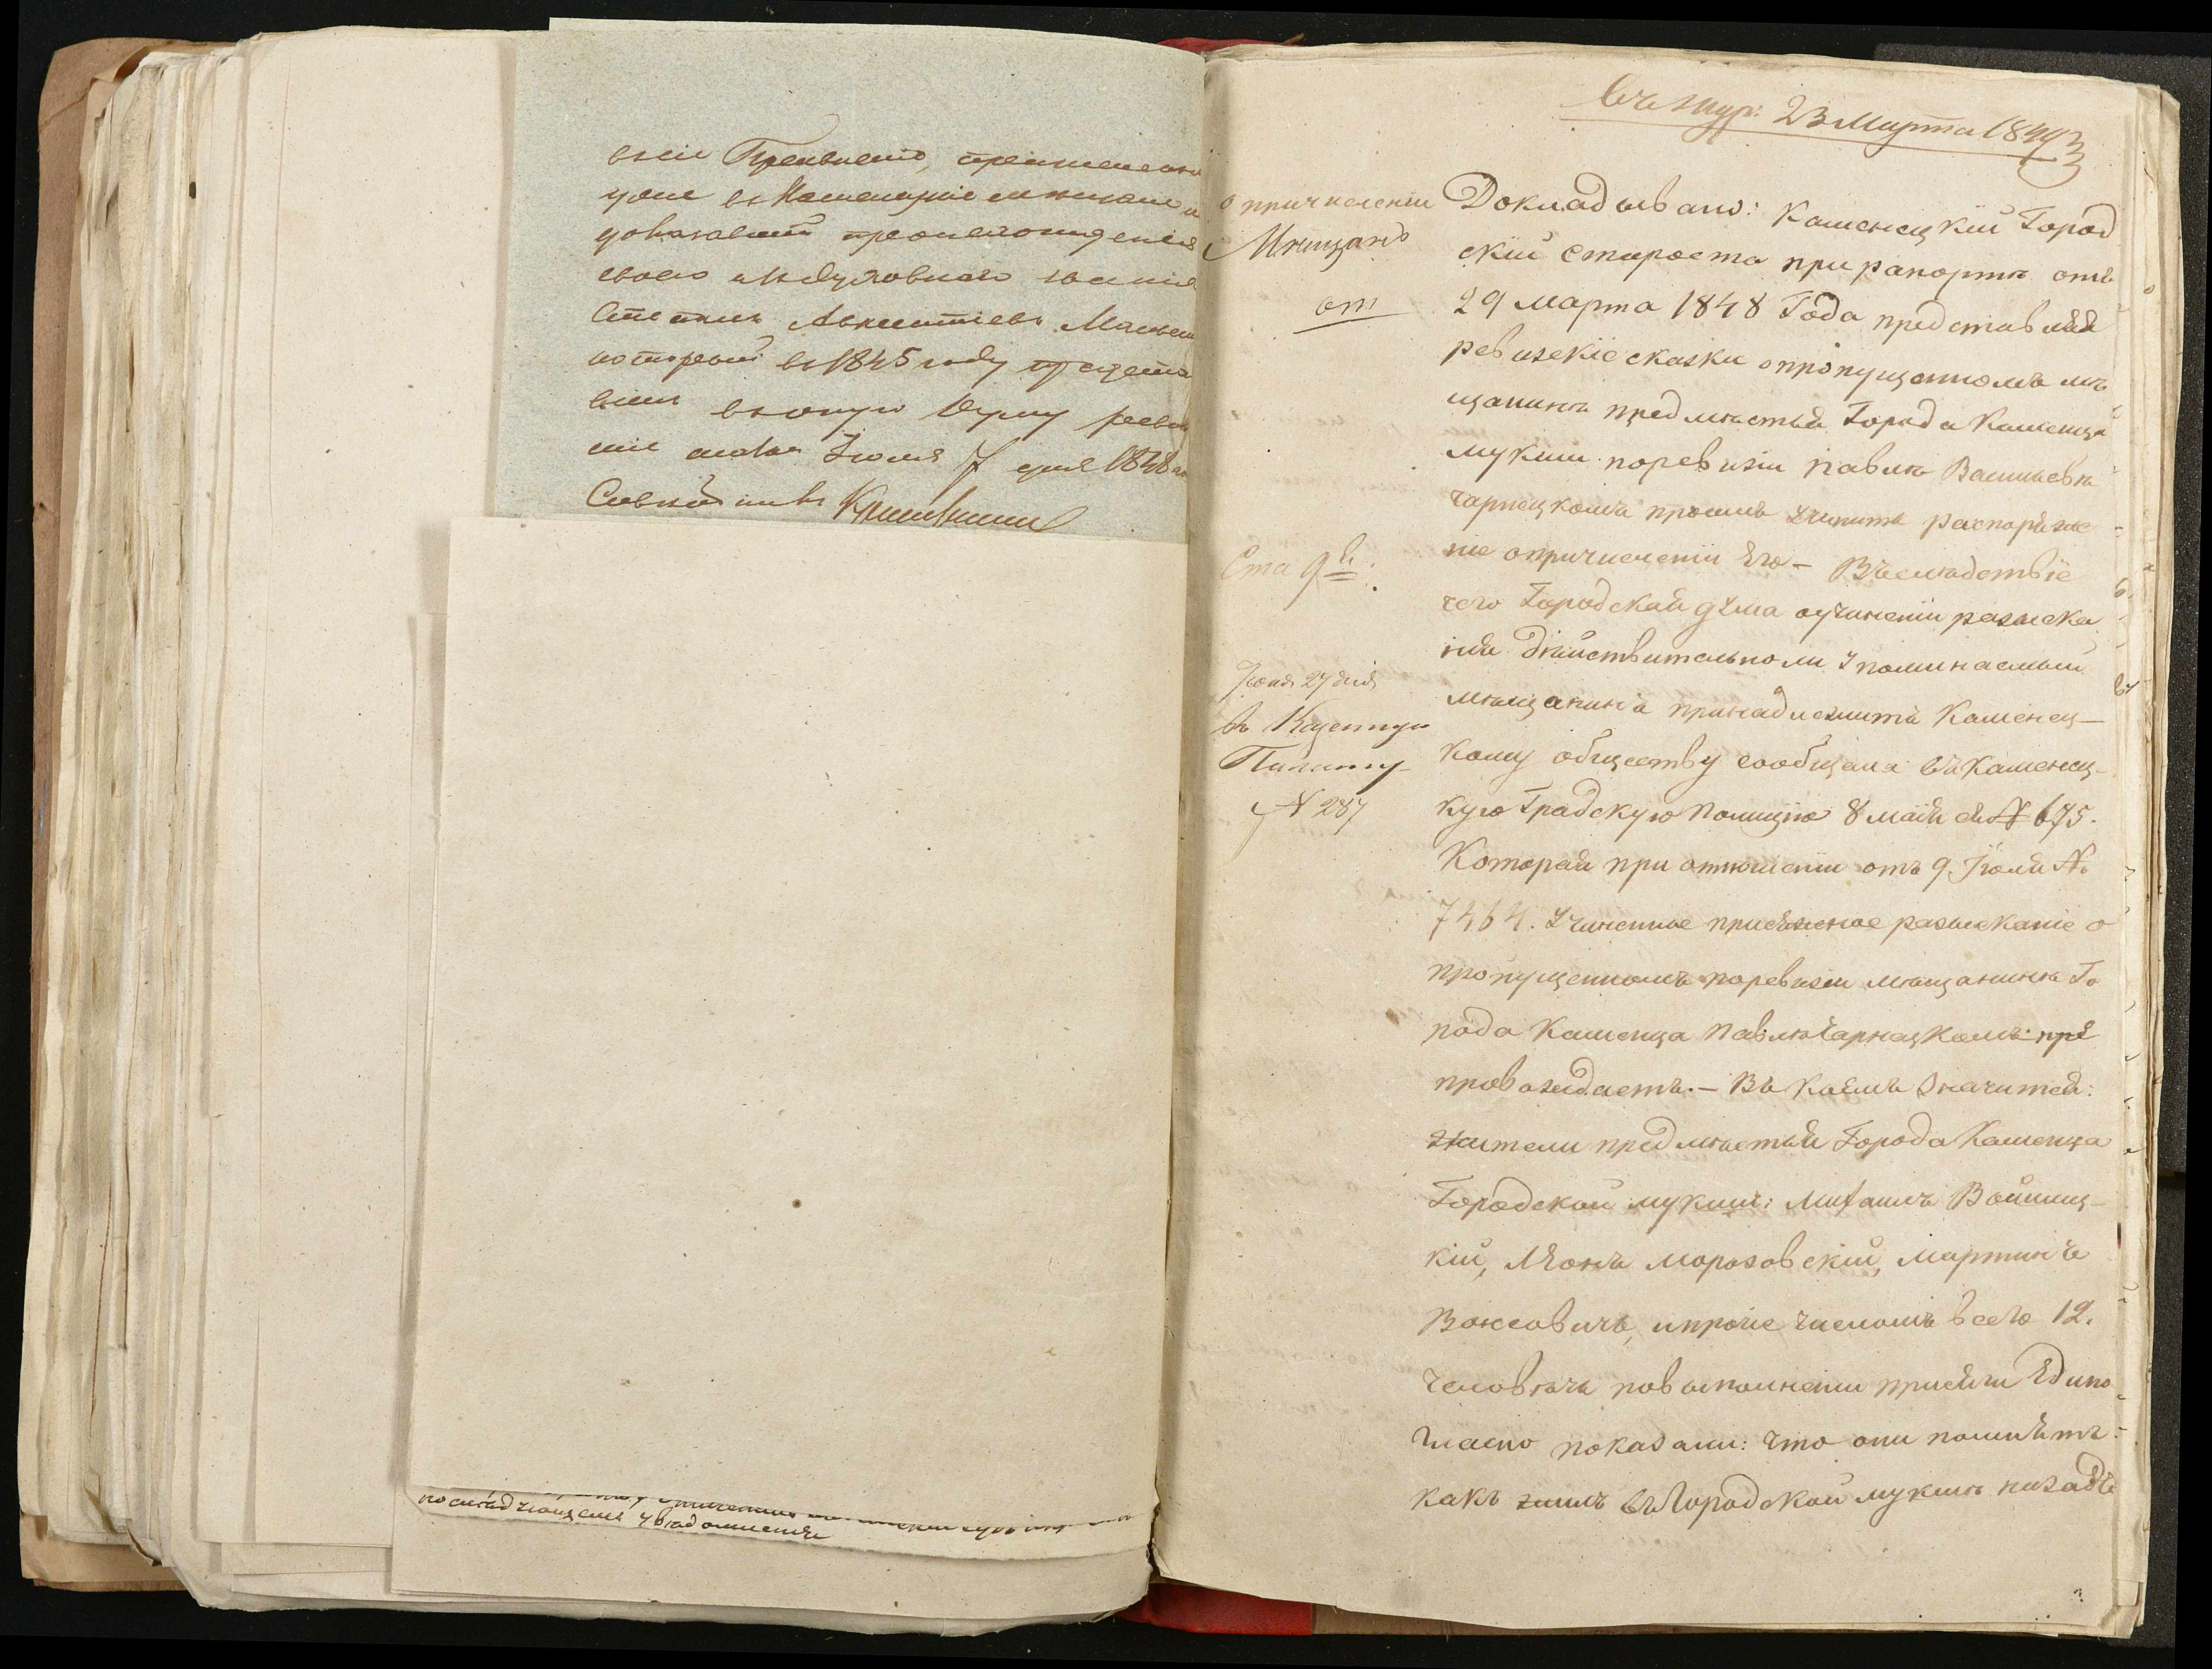 году въ Каменецкие мещане и
доказавший происхождения
своего изъ духовнаго звания
который въ 1845 году предста
вилъ въ оную Думу реви
Июня 7 дня 1848 го
послѣдующемъ увѣдомленіи
Въ жур: 23 Марта 1849
о причисленіи
Мѣщанъ
от
Ста 9й:
Іюня 27 дня
въ Казенную
Палату
№ 287
Докладывано: Каменецкій Город
скій староста при рапортѣ отъ
29 марта 1848 Года представляя
ревизскіе сказки о пропущенномъ мѣ
щанинѣ предмѣстья Города Каменца
мукши поревизіи павлѣ Васильевѣ
Чарнецкомъ просилъ учинить распоряже
ніе опричисленіи Его - Въслѣдствіе
чего Городская дума оучиненіи разыска
нія дѣйствительноли упоминаемый
мѣщанинъ принадлежитъ Каменец-
кому обществу сообщала въ Каменец-
кую Градскую Полицію 8 мая съ № 675.
Которая при отношеніи отъ 9 Іюля №
7464. Учиненное присяжное разысканіе о
пропущенномъ поревизіи мѣщанинѣ Го
рода Каменца Павлѣ Чарнецкомъ пре
провождаетъ. - Въ коемъ значится:
Жители предмѣстья Города Каменца
Городской мукши: Михаилъ Войниц-
кій, Леонъ Морозовскій, Мартинъ
Воксовичъ, ипрочіе числомъ всего 12.
человѣкъ повыполненіи присяги Едино
гласно показали: Что они помнятъ
какъ жилъ въ Городской мукшѣ назадъ